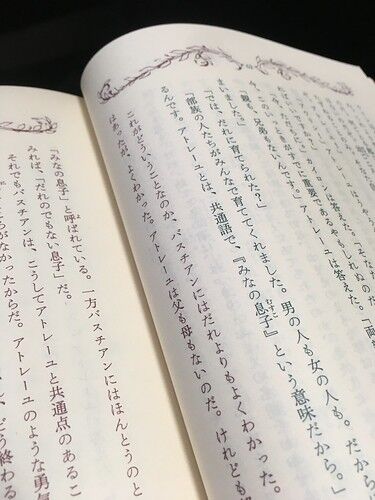 カイロンは答えた。
「親も、兄弟もないんです。」アトレーユは答えた。「両
まいました。」
「では、だれに育てられた？」
「部族の人たちがみんなで育ててくれました。男の人も女の人も。だから
るんです。アトレーユとは、共通語で、『みなの息子』という意味だから。」
むすこ
これがどういうことなのか、バスチアンにはだれよりもよくわかった。
はあったが、よくわかった。アトレーユは父も母もないのだ。けれども
「みなの息子」と呼ばれている。一方バスチアンにはほんとうのと
みれば、「だれのでもない息子」だ。
それでもバスチアンは、こうしてアトレーユと共通点のあるこ
ちがなかったからだ。アトレーユのような勇気
、どう終わる